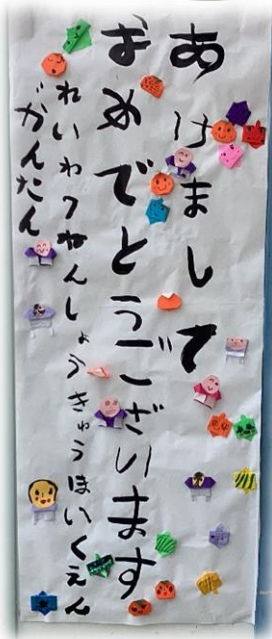 あけまして
おめでとうございます
れいわ7ねんしょうきゅうほいくえん
がんたん